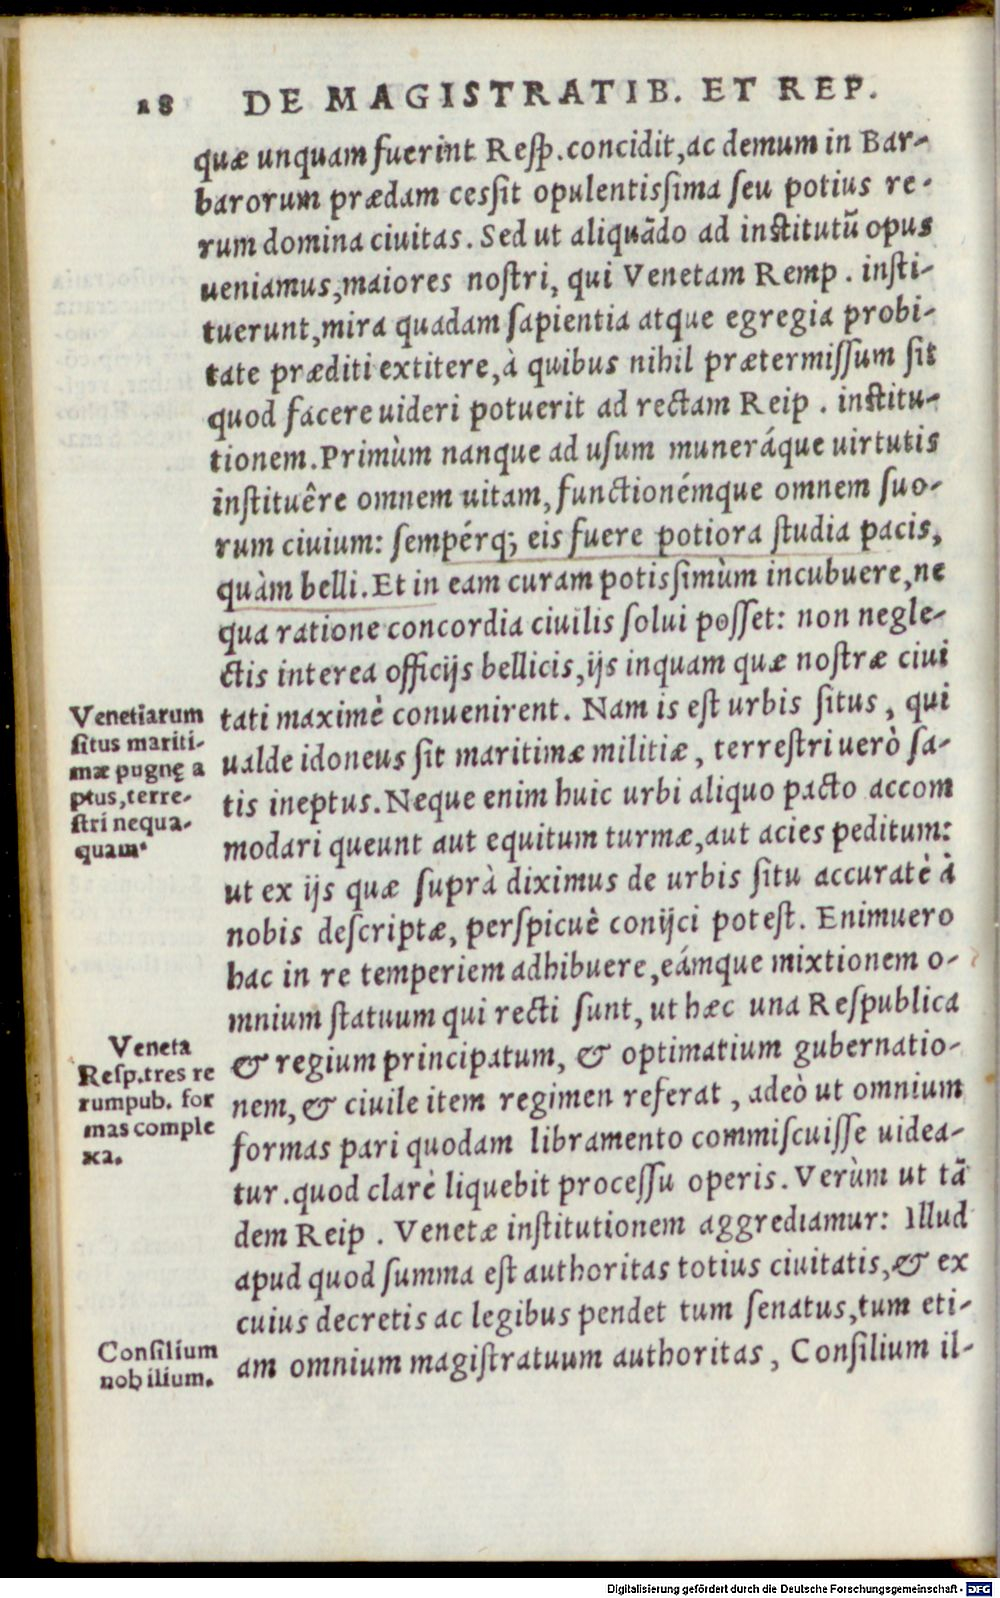 28 DE MAGISTRATIB. ET REP.
quæ unquam fuerint Resp. concidit, ac demum in Bar-
barorum prædam cessit opulentissima seu potius re-
rum domina ciuitas. Sed ut aliquãdo ad institutũ opus
ueniamus, maiores nostri, qui Venetam Remp. insti-
tuerunt, mira quadam sapientia atque egregia probi-
tate præditi extitere, à quibus nihil prætermissum sit
quod facere uideri potuerit ad rectam Reip. institu-
tionem. Primùm nanque ad usum muneráque uirtutis
instituêre omnem uitam, functionémque omnem suo-
rum ciuium: sempérq; eis fuere potiora studia pacis,
quàm belli. Et in eam curam potissimùm incubuere, ne
qua ratione concordia ciuilis solui posset: non negle-
ctis interea officijs bellicis, ijs inquam quæ nostræ ciui
tati maximè conuenirent. Nam is est urbis situs, qui
ualde idoneus sit maritimæ militiæ, terrestri uerò sa-
tis ineptus. Neque enim huic urbi aliquo pacto accom
modari queunt aut equitum turmæ, aut acies peditum:
ut ex ijs quæ suprà diximus de urbis situ accuratè à
nobis descriptæ, perspicuè conijci potest. Enimuero
hac in re temperiem adhibuere, eámque mixtionem o-
mnium statuum qui recti sunt, ut hæc una Respublica
& regium principatum, & optimatium gubernatio-
nem, & ciuile item regimen referat, adeò ut omnium
formas pari quodam libramento commiscuisse uidea-
tur. quod clarè liquebit processu operis. Verùm ut tã
dem Reip. Venetæ institutionem aggrediamur: Illud
apud quod summa est authoritas totius ciuitatis, & ex
cuius decretis ac legibus pendet tum senatus, tum eti-
am omnium magistratuum authoritas, Consilium il-
Venetiarum
situs mariti-
mæ pugnę a
ptus, terre-
stri nequa-
quam.
Veneta
Resp. tres re
rumpub. for
mas comple
xa.
Consilium
nobilium.
Digitalisierung gefördert durch die Deutsche Forschungsgemeinschaft - DFG